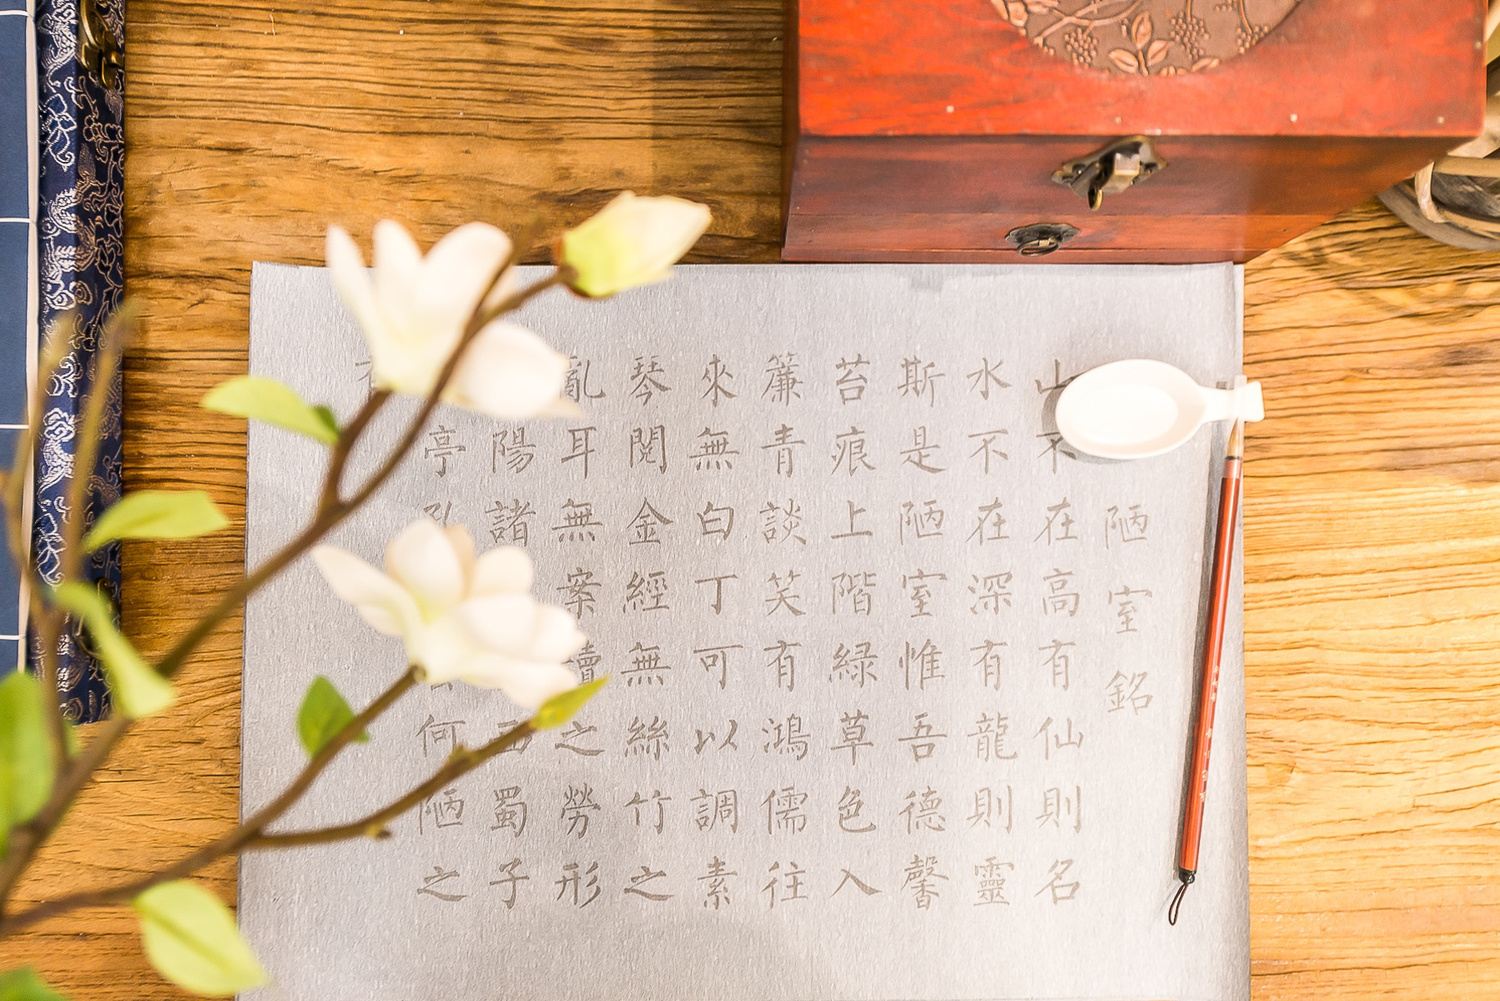 陋室銘
山不在高有仙則名
水不在深有龍則靈
斯是陋室惟吾德馨
苔痕上階緑草色入
簾青談笑有鴻儒往
來無白丁可以調素
琴閱金經無絲竹之
亂耳無案牘之勞形
陽諸西蜀子
亭孔何陋之